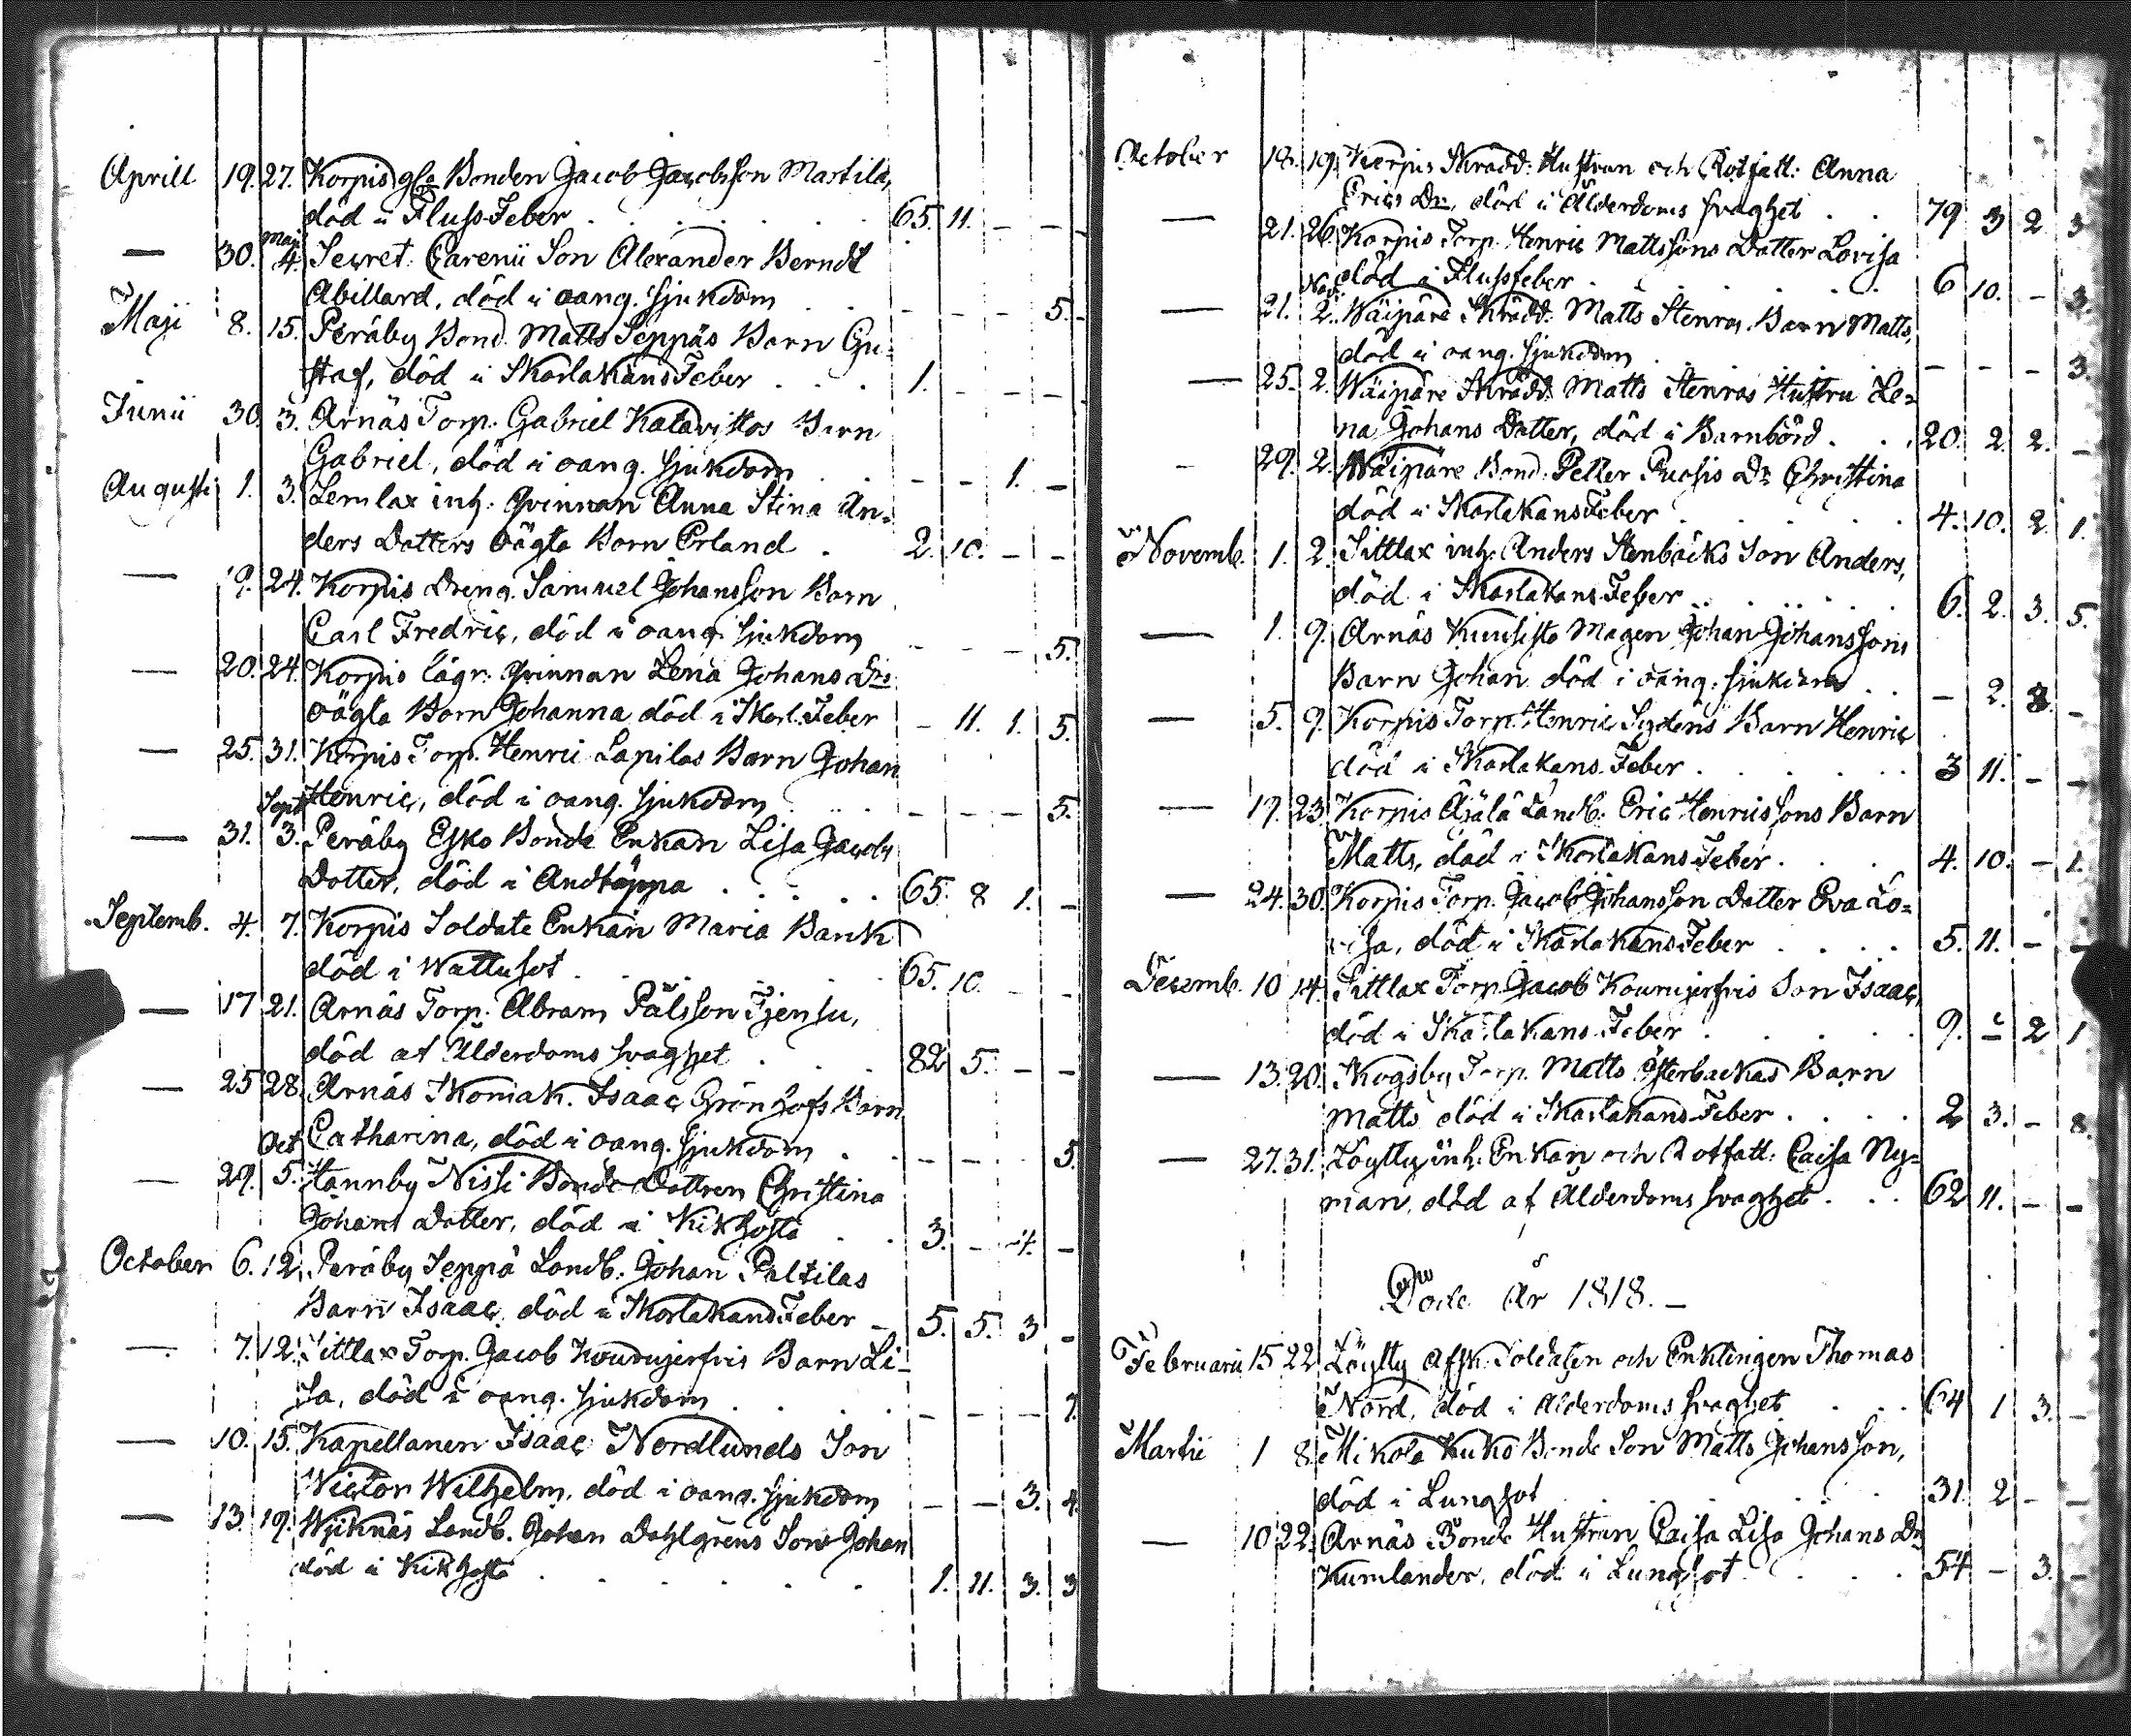 Aprill 19. 27. Korpis gla Bonden Jacob Jacobsson Martila,
död i Fluss Feber . . . . . . 65. 11. - -
— 30. Maji 4. Secret. Carenii Son Alexander Berndt
Abillard, död i oang. sjukdom . . - - - 5.
Maji 8. 15. Peräby Bond. Matts Seppäs Barn Gu-
staf, död i Skarlakans Feber . . . 1. - - -
Junii 30. 3. Arnäs Torp. Gabriel Katavistos Barn
Gabriel, död i oang. sjukdom . . - - 1. -
Augusti 1. 3. Lemlax inh. Qvinnan Anna Stina An-
ders Dotters oägta Barn Erland . 2. 10. - -
— 9. 24. Korpis Dreng. Samuel Johansson Barn
Carl Fredric, död i oang. sjukdom - - - 5.
— 20. 24. Korpis lägr. Qvinnan Lena Johans Drs
oägta Barn Johanna död i Skarl. Feber - 11. 1. 5.
— 25. 31. Korpis Torp. Henric Lapilas Barn Johan
Henric, död i oang. sjukdom . . - - - 5.
— 31. Sept 3. Peräby Esko Bonde Enkan Lisa Jacobs
Dotter, död i Andtäppa . . . . . 65. 8 1. -
Septemb. 4. 7. Korpis Soldate Enkan Maria Bank
död i Wattusot . . . . 65. 10. - -
— 17 21. Arnäs Torp. Abram Pålsson Tjensu,
död af Ålderdoms svaghet . . . 82 5. - -
— 25 28. Arnäs Skomak. Isaac Grönhofs Barn
Catharina, död i oang. sjukdom . . - - - 5.
— 29. Oct 5. Hannby Nissi Bonde Dottren Christina
Johans Dotter, död i Kikhosta . . 3. - 4. -
October 6. 12. Peräby Seppä Landb. Johan Paltilas
Barn Isaac, död i Skarlakans Feber - 5. 5. 3 -
— 7. 12. Sittlax Torp. Jacob Kourujerfvis Barn Li-
sa, död i oang. sjukdom . . . - - - 7.
— 10. 15. Kapellanen Isaac Nordlunds Son
Victor Wilhelm, död i oang. sjukdom - - 3. 4.
— 13. 19. Wiknäs Landb. Johan Dahlgrens Son Johan
död i Kikhosta . . . . . . 1. 11. 3. 3
October 18. 19. Korpis Skrädd. Hustrun och Rotfatt. Anna
Erics Dr, död i Ålderdoms svaghet . . 79 3 2. 3
— 21. 26. Korpis Torp. Henric Mattssons Dotter Lovisa
död i Flussfeber . . . . . . 6 10. - 3.
— 21. Nov. 2. Wäipäre Skrädd. Matts Stenros Barn Matts,
död i oang. sjukdom . . . . - - - 3.
— 25. 2. Wäipäre Skrädd. Matts Stenros Hustru Le-
na Johans Dotter, död i Barnbörd . . . 20. 2. 2. -
- 29. 2. Wäipäre Bond. Petter Dr Christina
död i Skarlakans Feber . . . . . 4. 10. 2. 1.
Novemb. 1. 2. Sittlax inh. Anders Stenbäcks Son Anders,
död i Skarlakans Feber . . . . . 6. 2. 3. 5.
— 1. 9. Arnäs Kuusisto Mågen Johan Johanssons
Barn Johan död i oang. sjukdom . . - 2. 3. -
— 5. 9. Korpis Torp. Henric Barn Henric
död i Skarlakans Feber . . . . . . 3 11. - -
— 17. 23. Korpis Äjälä Landb. Eric Henricssons Barn
Matts, död i Skarlakans Feber . . . 4. 10. - 1.
— 24. 30. Korpis Torp. Jacob Johansson Dotter Eva Lo-
visa, död i Skarlakans Feber . . . . 5. 11. - -
Decemb. 10 14. Sittlax Torp. Jacob Kourujerfvis Son Isaac,
död i Skarlakans Feber . . . . . 9. - 2 1
— 13. 20. Skogsby Torp. Matts Österbackas Barn
Matts död i Skarlakans Feber . . . . 2 3. - 8.
— 27. 31. Löytty inh. Enkan och Rotfatt. Caisa Ny-
man, död af Ålderdoms svaghet . . . 62 11. - -
Döde År 1818. -
Februarii 15 22 Löytty Afsk. Soldaten och Enklingen Thomas
Nord, död i Ålderdoms svaghet . . . 64 1 3. -
Martii 1 8. Mikola Kuko Bonde Son Matts Johansson,
död i Lungsot . . . . . 31. 2 - -
— 10 22. Arnäs Bonde Hustrun Caisa Lisa Johans Dr
Kumlander, död i Lungsot . . . 54 - 3. -